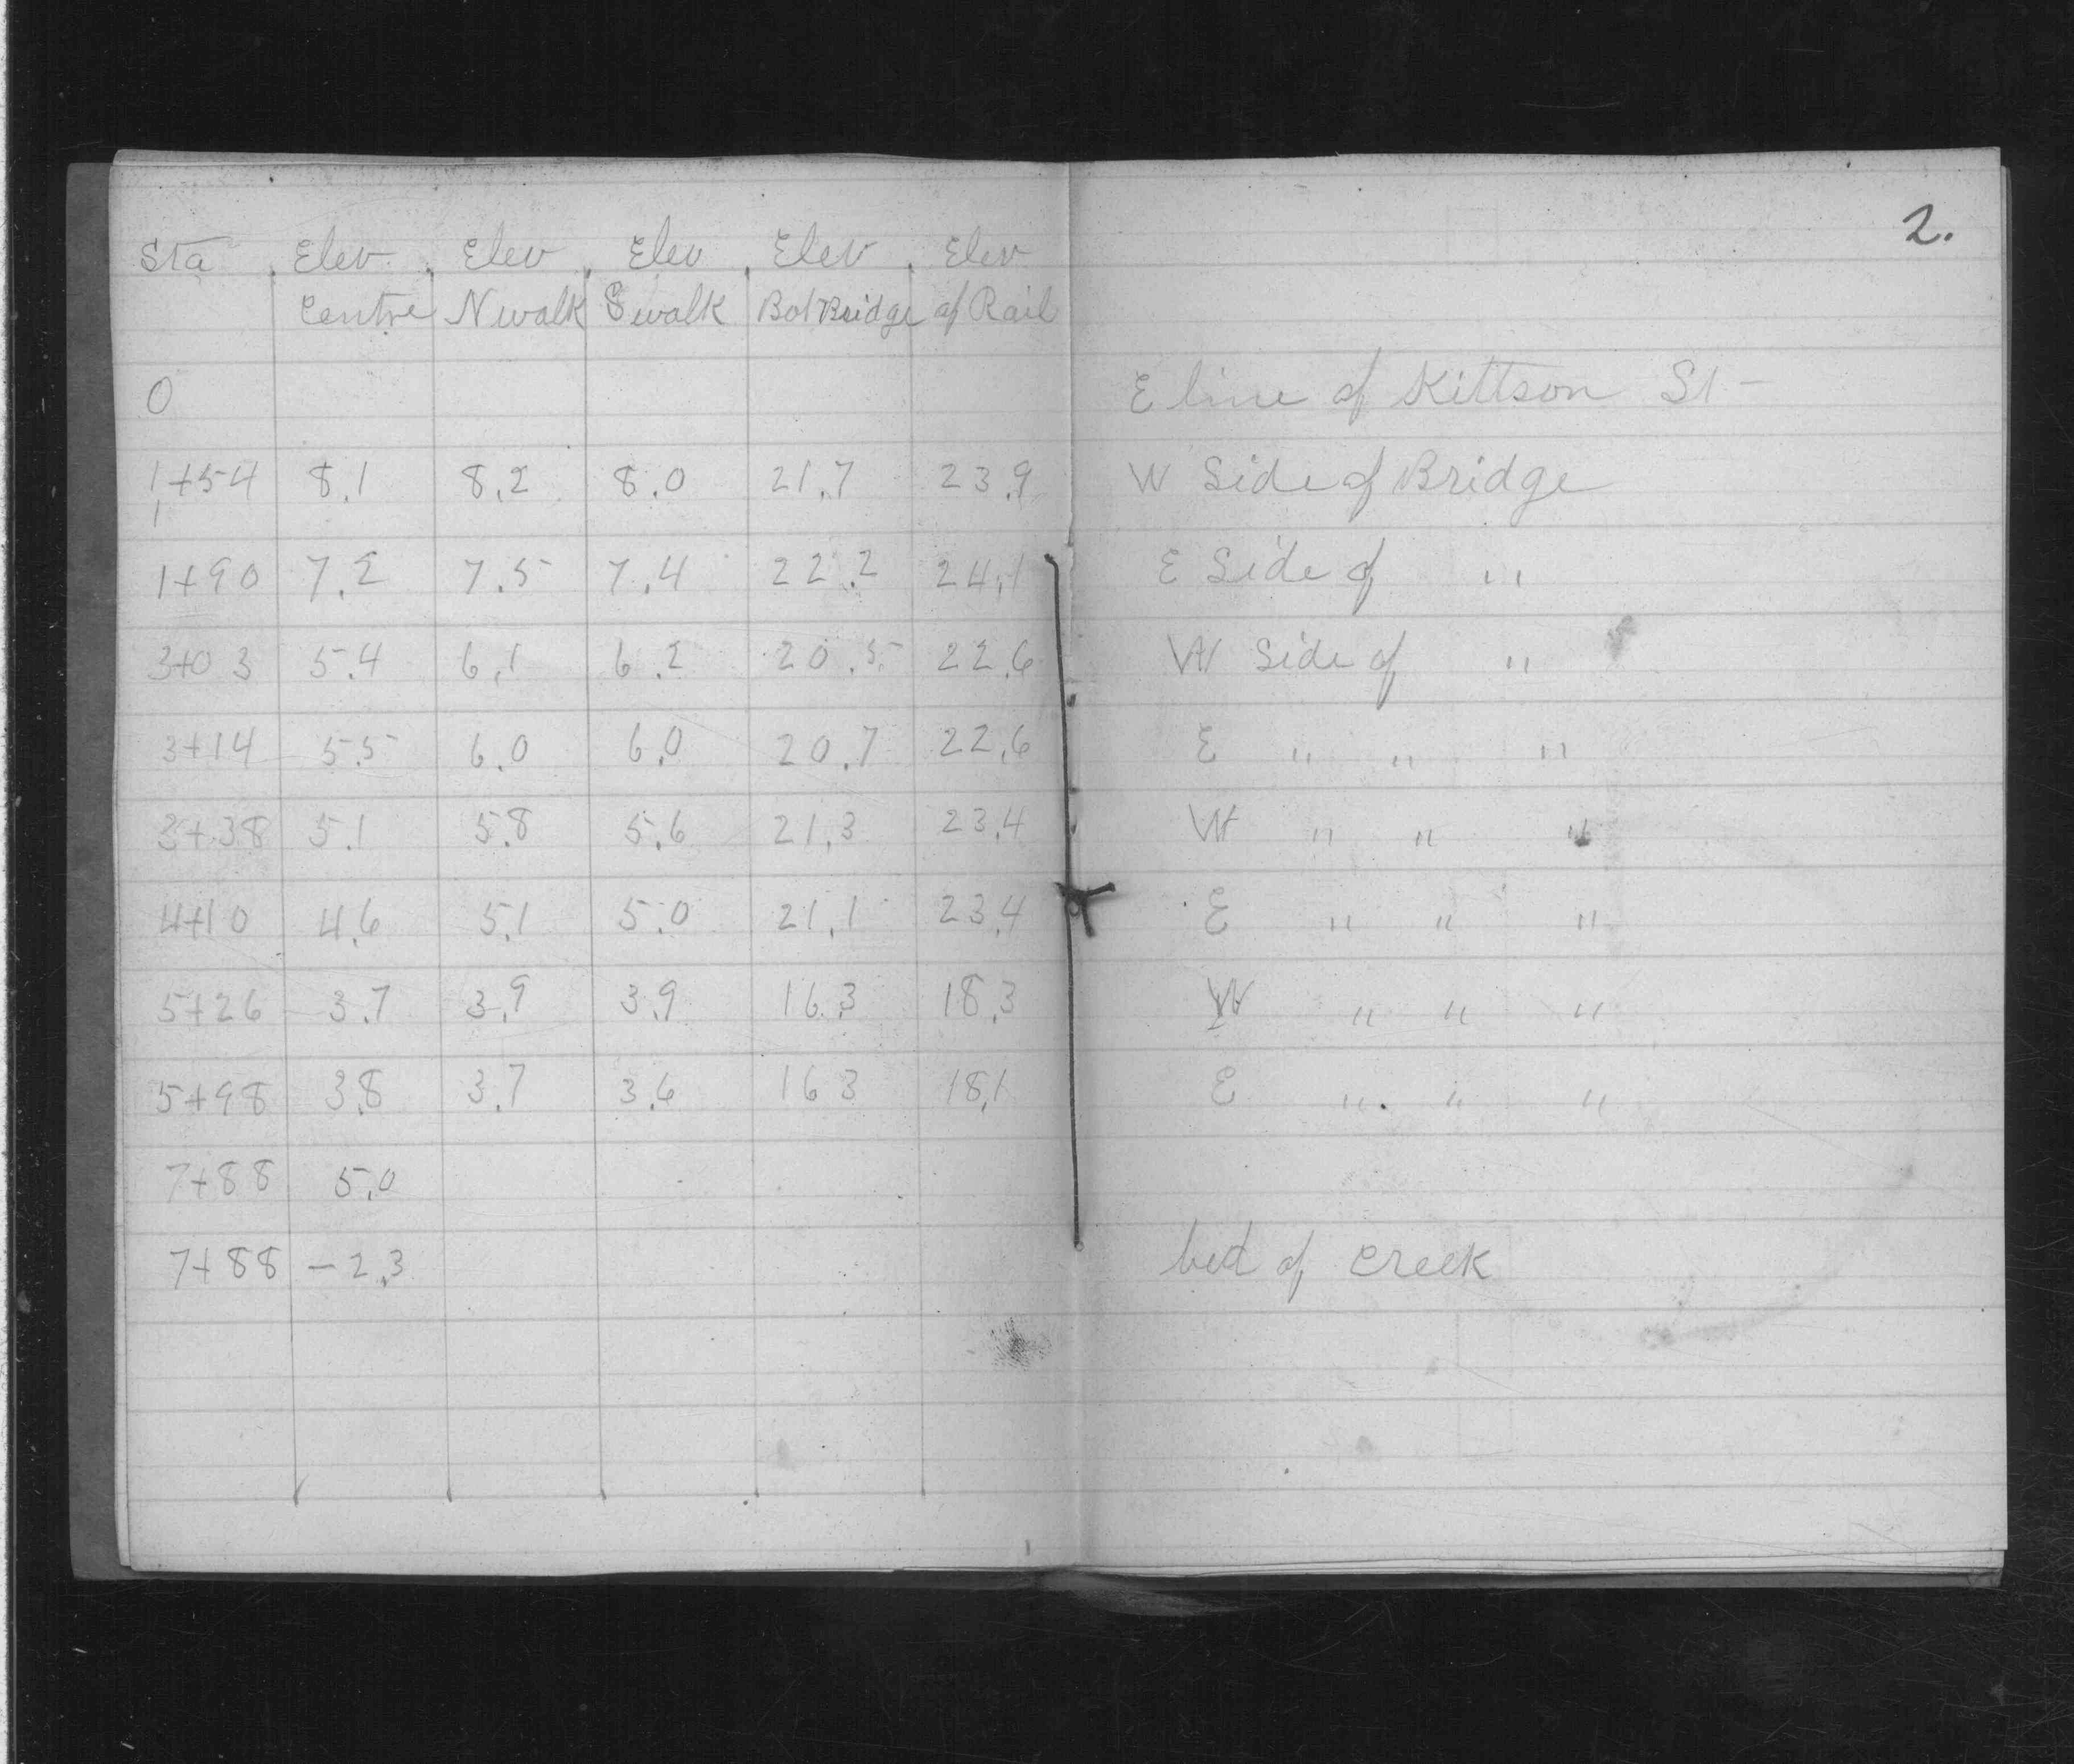 2.
Sta Elev Elev Elev Elev Elev
Centre N walk S walk Bot Bridge of Rail
0 E line of Kittson St-
1+54 8.1 8.2 8.0 21.7 23.9 W Side of Bridge
1+90 7.2 7.5 7.4 22.2 24.1 E Side of "
3+03 5.4 6.1 6.2 20.5 22.6 W Side of "
3+14 5.5 6.0 6.0 20.7 22.6 E " " "
3+38 5.1 5.8 5.6 21.3 23.4 W " " "
4+10 4.6 5.1 5.0 21.1 23.4 E " " "
5+26 3.7 3.9 3.9 16.3 18.3 W " " "
5+98 3.8 3.7 3.6 16 3 18.1 E " " "
7+88 5.0
7+88 -2.3 bed of creek